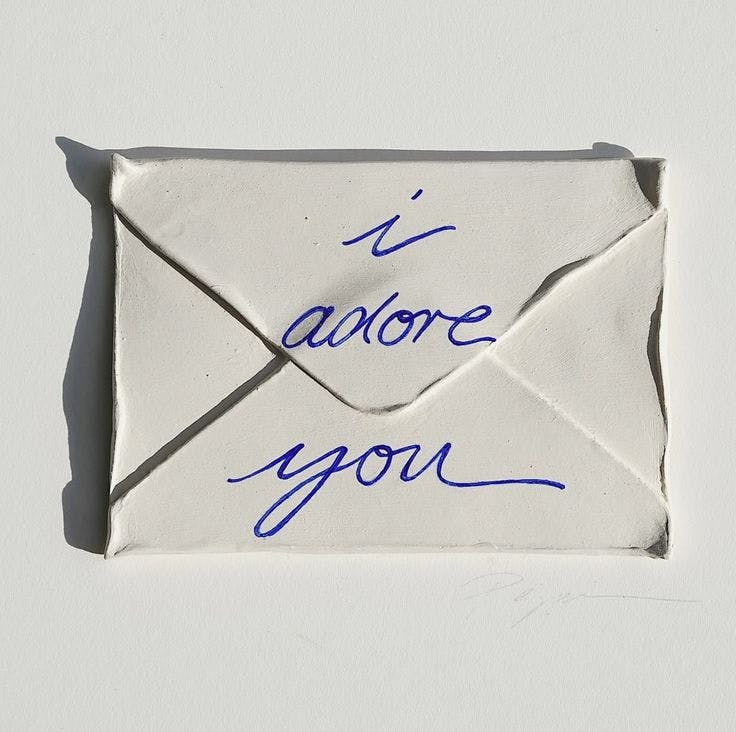 i
adore
you